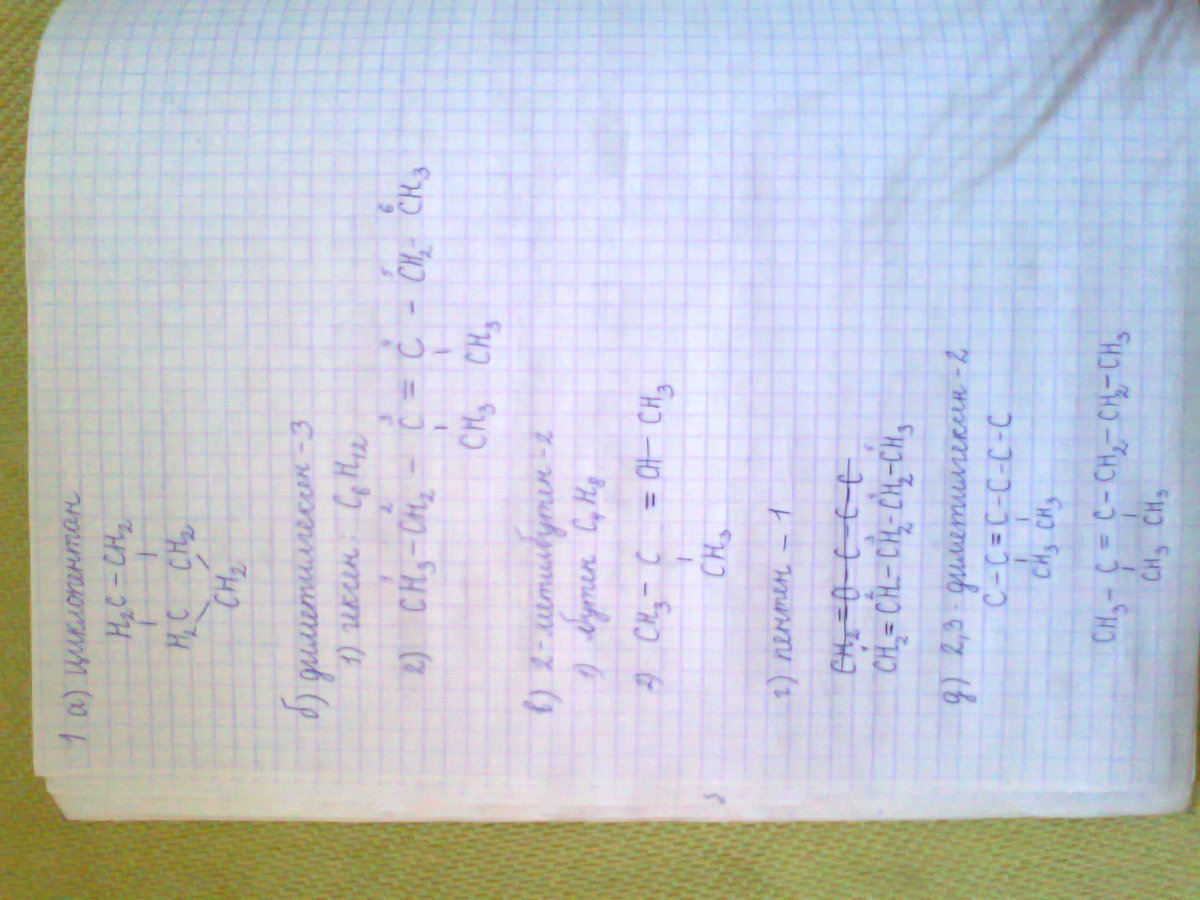 1 а) Циклопентан
H₂C – CH₂
H₂C CH₂
CH₂
б) диметилгексен – 3
1) гексен: C₆H₁₂
1 2 3 4 5 6
2) CH₃ – CH₂ – C = C – CH₂ – CH₃
CH₃ CH₃
в) 2 – метилбутен – 2
1) бутен C₄H₈
2) CH₃ – C = CH – CH₃
CH₃
г) пентен – 1
CH₂ = CH – CH₂ – CH₂ – CH₃
д) 2,3 – диметилгексен – 2
C – C = C – C – C – C
CH₃ CH₃
CH₃ – C = C – CH₂ – CH₂ – CH₃
CH₃ CH₃